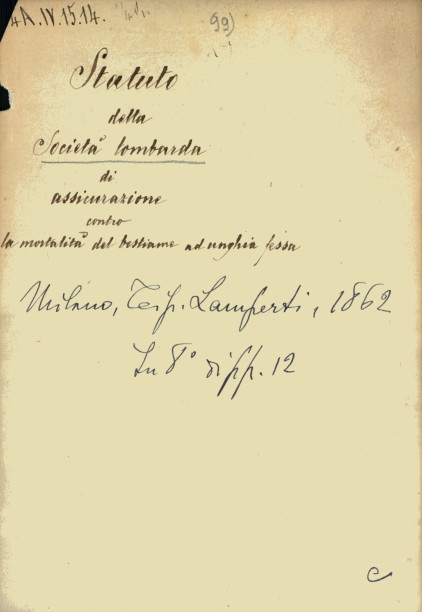 4A.IV.15.14.
99)
Statuto
della
Società lombarda
di
assicurazione
contro
la mortalità del bestiame ad unghia fessa
Milano, Tip. Lamperti, 1862
In 8° di pp. 12
c